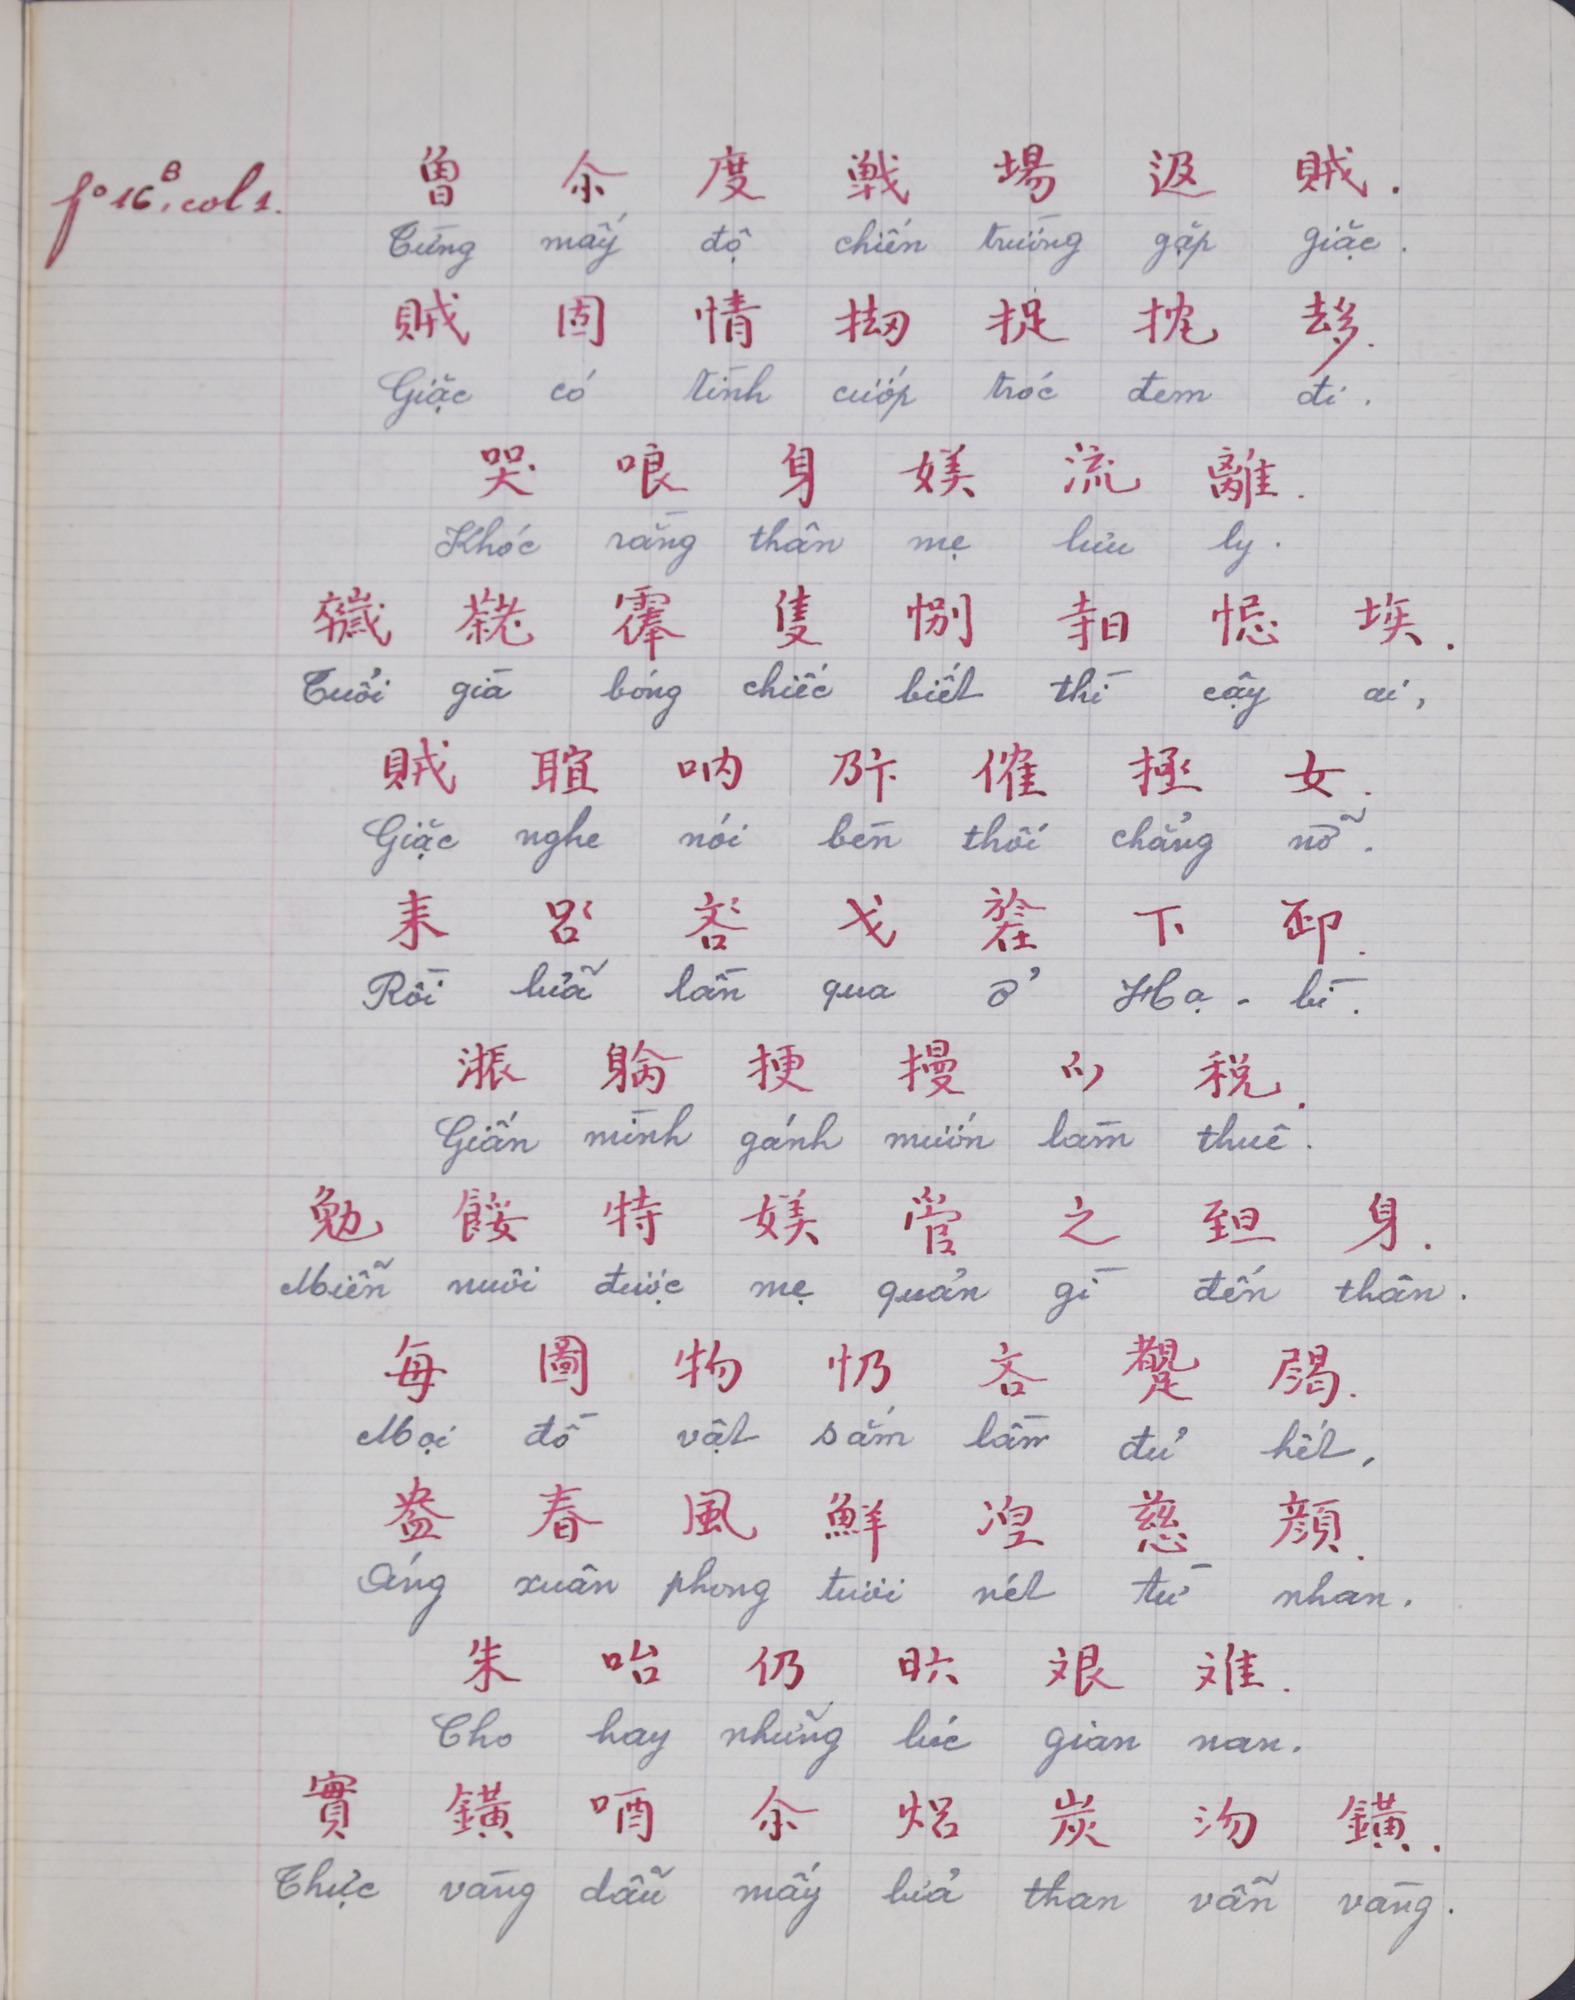 fº 16ᴮ, col 1.
曾 尒 度 戦 場 𨒒 賊.
Từng mấy độ chiến trường gặp giặc.
賊 固 情 㧅 捉 抌 𠫾.
Giặc có tình cướp tróc đem đi.
哭 哴 身 媄 流 離.
Khóc rằng thân mẹ lưu ly.
隻
Tuổi già bóng chiếc biết thì cậy ai,
賊 吶 女.
Giặc nghe nói bèn thôi chẳng nỡ.
耒 吝 戈 下 邳.
Rồi lữa lần qua ở Hạ - bì.
税.
Giấn mình gánh mướn làm thuê.
勉 餒 特 媄 管 之 身.
Miễn nuôi được mẹ quản gì đến thân.
每 圖 物 吝
Mọi đồ vật sắm lần đủ hết,
盎 春 風 鮮 涅 慈 顔.
Áng xuân phong tươi nét từ nhan.
朱 咍 仍 艰 难.
Cho hay những lúc gian nan.
實 鐄 尒 焒 炭 沕 鐄.
Thực vàng dẫu mấy lửa than vẫn vàng.